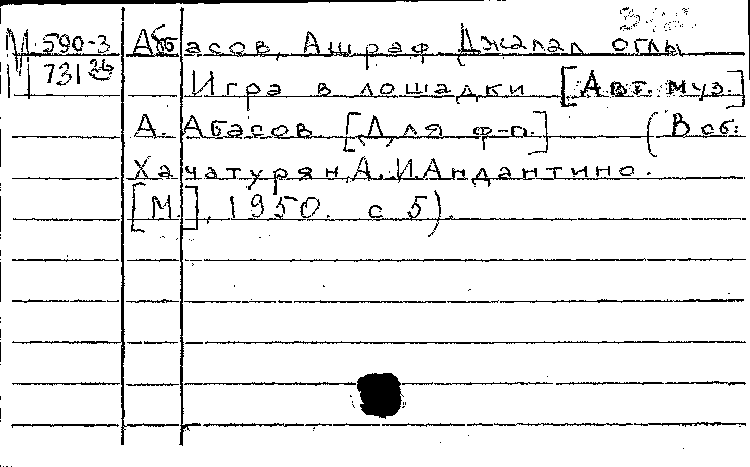 М 590-3 Аббасов, Ашраф Джалал оглы
731
Игра в лошадки [Авт. муз.]
А. Абасов [Для ф-п.] (В сб:
Хачатурян, А. И. Андантино.
[М.], 1950. с 5).